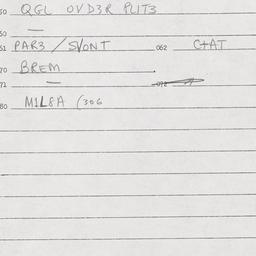 50 QGL OVD3R PLIT3
50 —
51 PAR3 / SVONT 062 C+AT
70 BREM
71 — 072
80 M1L8A (306